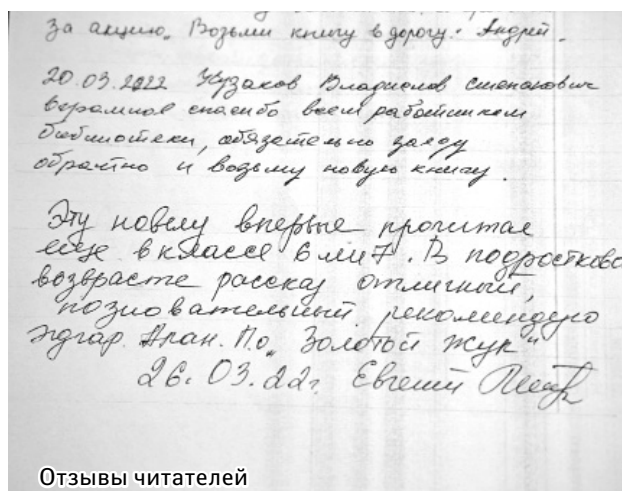 за акцию „Возьми книгу в дорогу". Андрей.
20.03.2022 Кузаков Владислав Степанович
огромное спасибо всем работникам
библиотеки, обязательно заеду
обратно и возьму новую книгу.
Эту новелу впервые прочитал
еще в классе 6 или 7. В подростково
возврасте рассказ отличный,
познователный, рекомендую
Эдгар. Алан. По „Золотой жук"
26.03.22г. Евгений
Отзывы читателей